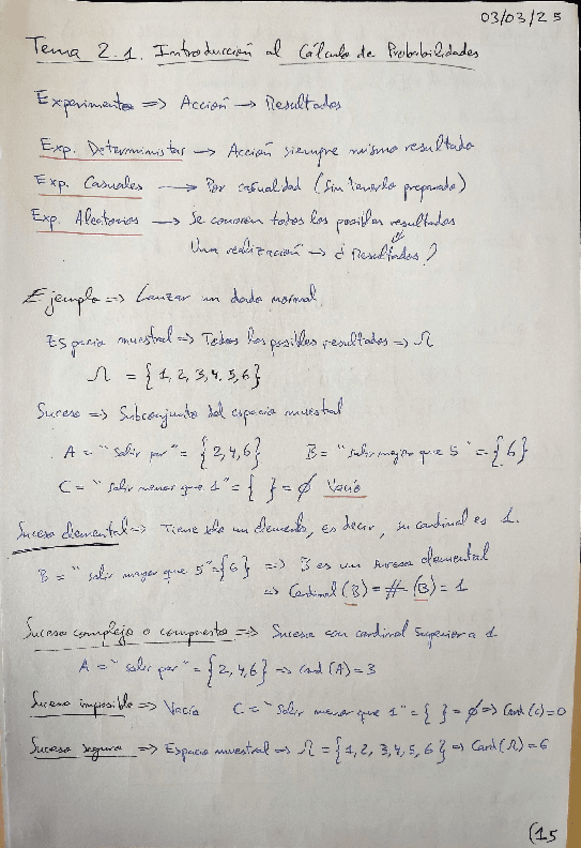 03/03/25
Tema 2.1. Introducción al Cálculo de Probabilidades
Experimento => Acción → Resultados
Exp. Deterministas → Acción siempre mismo resultado
Exp. Casuales → Por casualidad (Sin tenerlo preparado)
Exp. Aleatorios → Se conocen todos los posibles resultados
Una realización → ¿Resultados?
Ejemplo => Lanzar un dado normal
Espacio muestral => Todos los posibles resultados => Ω
Ω = {1, 2, 3, 4, 5, 6}
Suceso => Subconjunto del espacio muestral
A = "Salir par" = {2, 4, 6} B = "Salir mayor que 5" = {6}
C = "Salir menor que 1" = { } = ∅ Vacío
Suceso elemental => Tiene solo un elemento, es decir, su cardinal es 1.
B = "salir mayor que 5" = {6} => B es un suceso elemental
=> Cardinal (B) = # (B) = 1
Suceso complejo o compuesto => Suceso con cardinal superior a 1
A = "salir par" = {2, 4, 6} => Card (A) = 3
Suceso imposible => Vacío C = "Salir menor que 1" = { } = ∅ => Card (C) = 0
Suceso seguro => Espacio muestral => Ω = {1, 2, 3, 4, 5, 6} => Card (Ω) = 6
(15